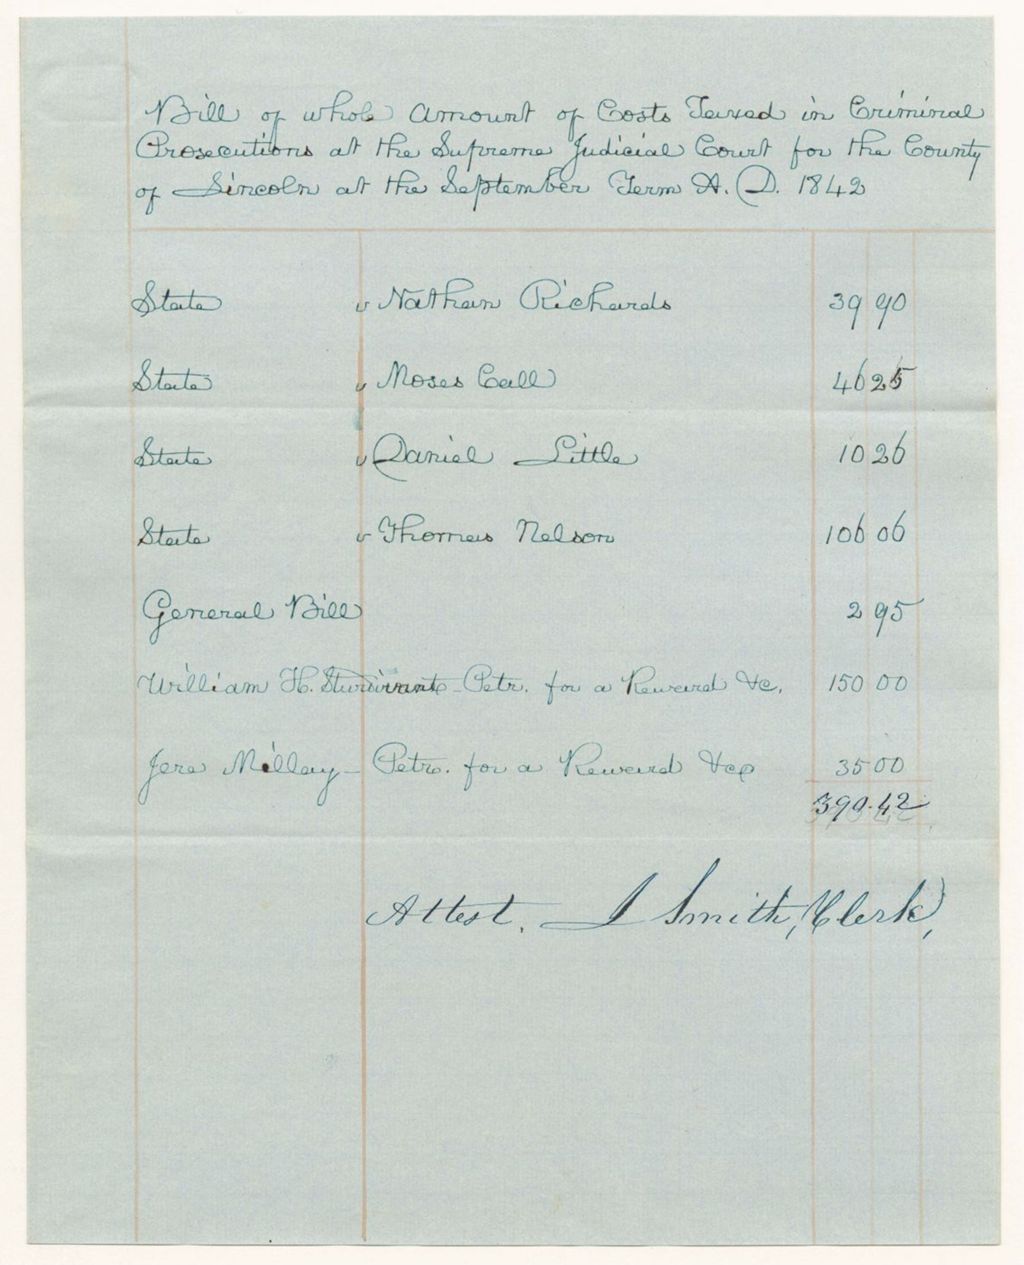 Bill of whole amount of Costs Taxed in Criminal
Prosecutions at the Supreme Judicial Court for the County
of Lincoln at the September Term A. D. 1842
State v Nathan Richards 39 90
State v Moses Call 46 25
State v Daniel Little 10 26
State v Thomas Nelson 106 06
General Bill 2 95
William H. Sturtivant - Petr. for a Reward &c. 150 00
Jere Millay - Petr. for a Reward &c 35 00
390.42
Attest, J Smith, Clerk,